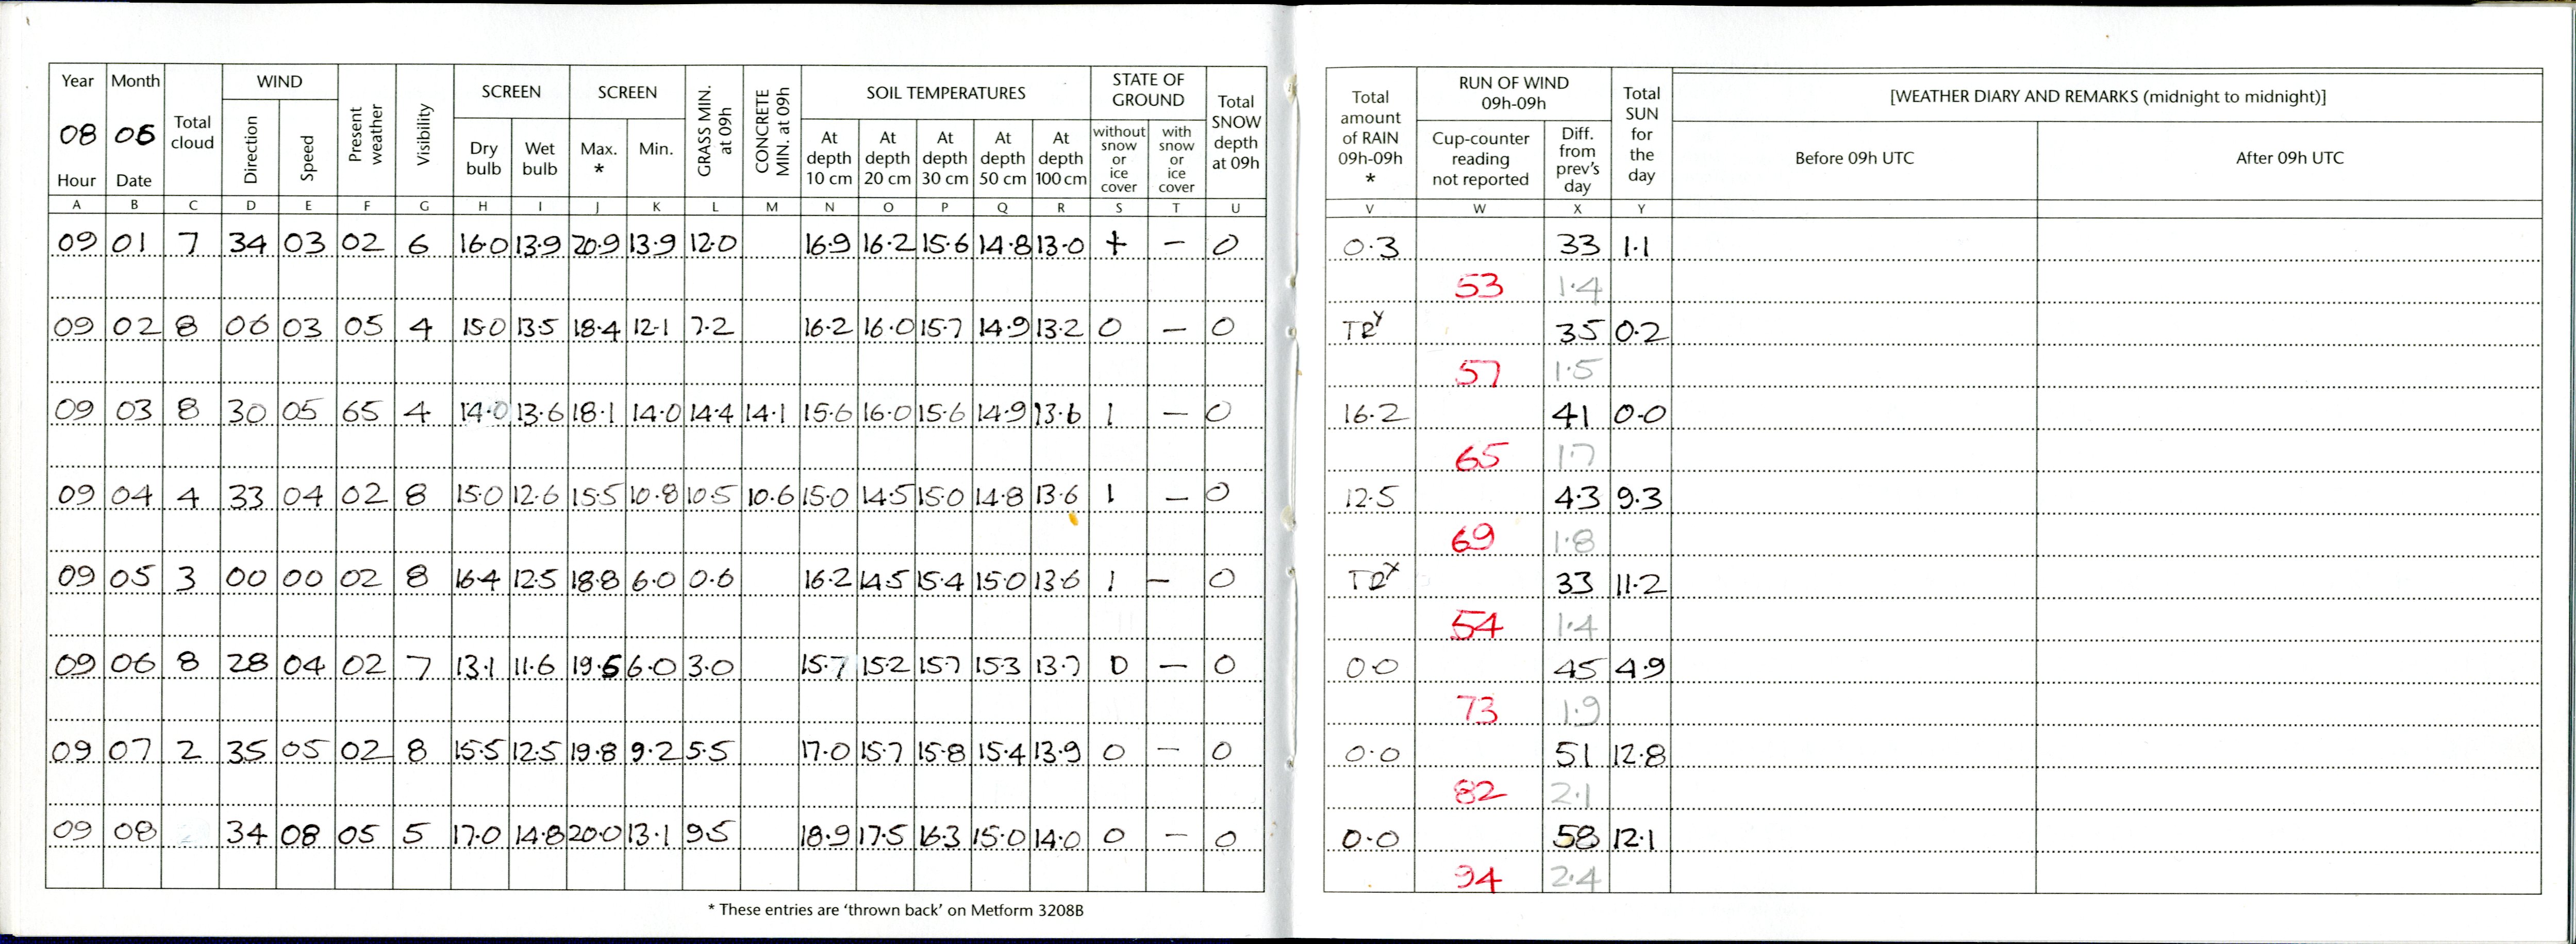 Year Month Total cloud WIND Present weather Visibility SCREEN SCREEN GRASS MIN. at 09h CONCRETE MIN. at 09h SOIL TEMPERATURES STATE OF GROUND Total SNOW depth at 09h
08 06 Direction Speed Dry bulb Wet bulb Max. * Min. At depth 10 cm At depth 20 cm At depth 30 cm At depth 50 cm At depth 100 cm without snow or ice cover with snow or ice cover
Hour Date
A B C D E F G H I J K L M N O P Q R S T U
09 01 7 34 03 02 6 16.0 13.9 20.9 13.9 12.0 16.9 16.2 15.6 14.8 13.0 + - 0
09 02 8 06 03 05 4 15.0 13.5 18.4 12.1 7.2 16.2 16.0 15.7 14.9 13.2 0 - 0
09 03 8 30 05 65 4 14.0 13.6 18.1 14.0 14.4 14.1 15.6 16.0 15.6 14.9 13.6 1 - 0
09 04 4 33 04 02 8 15.0 12.6 15.5 10.8 10.5 10.6 15.0 14.5 15.0 14.8 13.6 1 - 0
09 05 3 00 00 02 8 16.4 12.5 18.8 6.0 0.6 16.2 14.5 15.4 15.0 13.6 1 - 0
09 06 8 28 04 02 7 13.1 11.6 19.5 6.0 3.0 15.7 15.2 15.7 15.3 13.7 0 - 0
09 07 2 35 05 02 8 15.5 12.5 19.8 9.2 5.5 17.0 15.7 15.8 15.4 13.9 0 - 0
09 08 34 08 05 5 17.0 14.8 20.0 13.1 9.5 18.9 17.5 16.3 15.0 14.0 0 - 0
* These entries are 'thrown back' on Metform 3208B
Total amount of RAIN 09h-09h * RUN OF WIND 09h-09h Total SUN for the day [WEATHER DIARY AND REMARKS (midnight to midnight)]
Cup-counter reading not reported Diff. from prev's day Before 09h UTC After 09h UTC
V W X Y
0.3 33 1.1
53 1.4
TRY 35 0.2
57 1.5
16.2 41 0.0
65 1.7
12.5 4.3 9.3
69 1.8
TRY 33 11.2
54 1.4
0.0 45 4.9
73 1.9
0.0 51 12.8
82 2.1
0.0 58 12.1
94 2.4